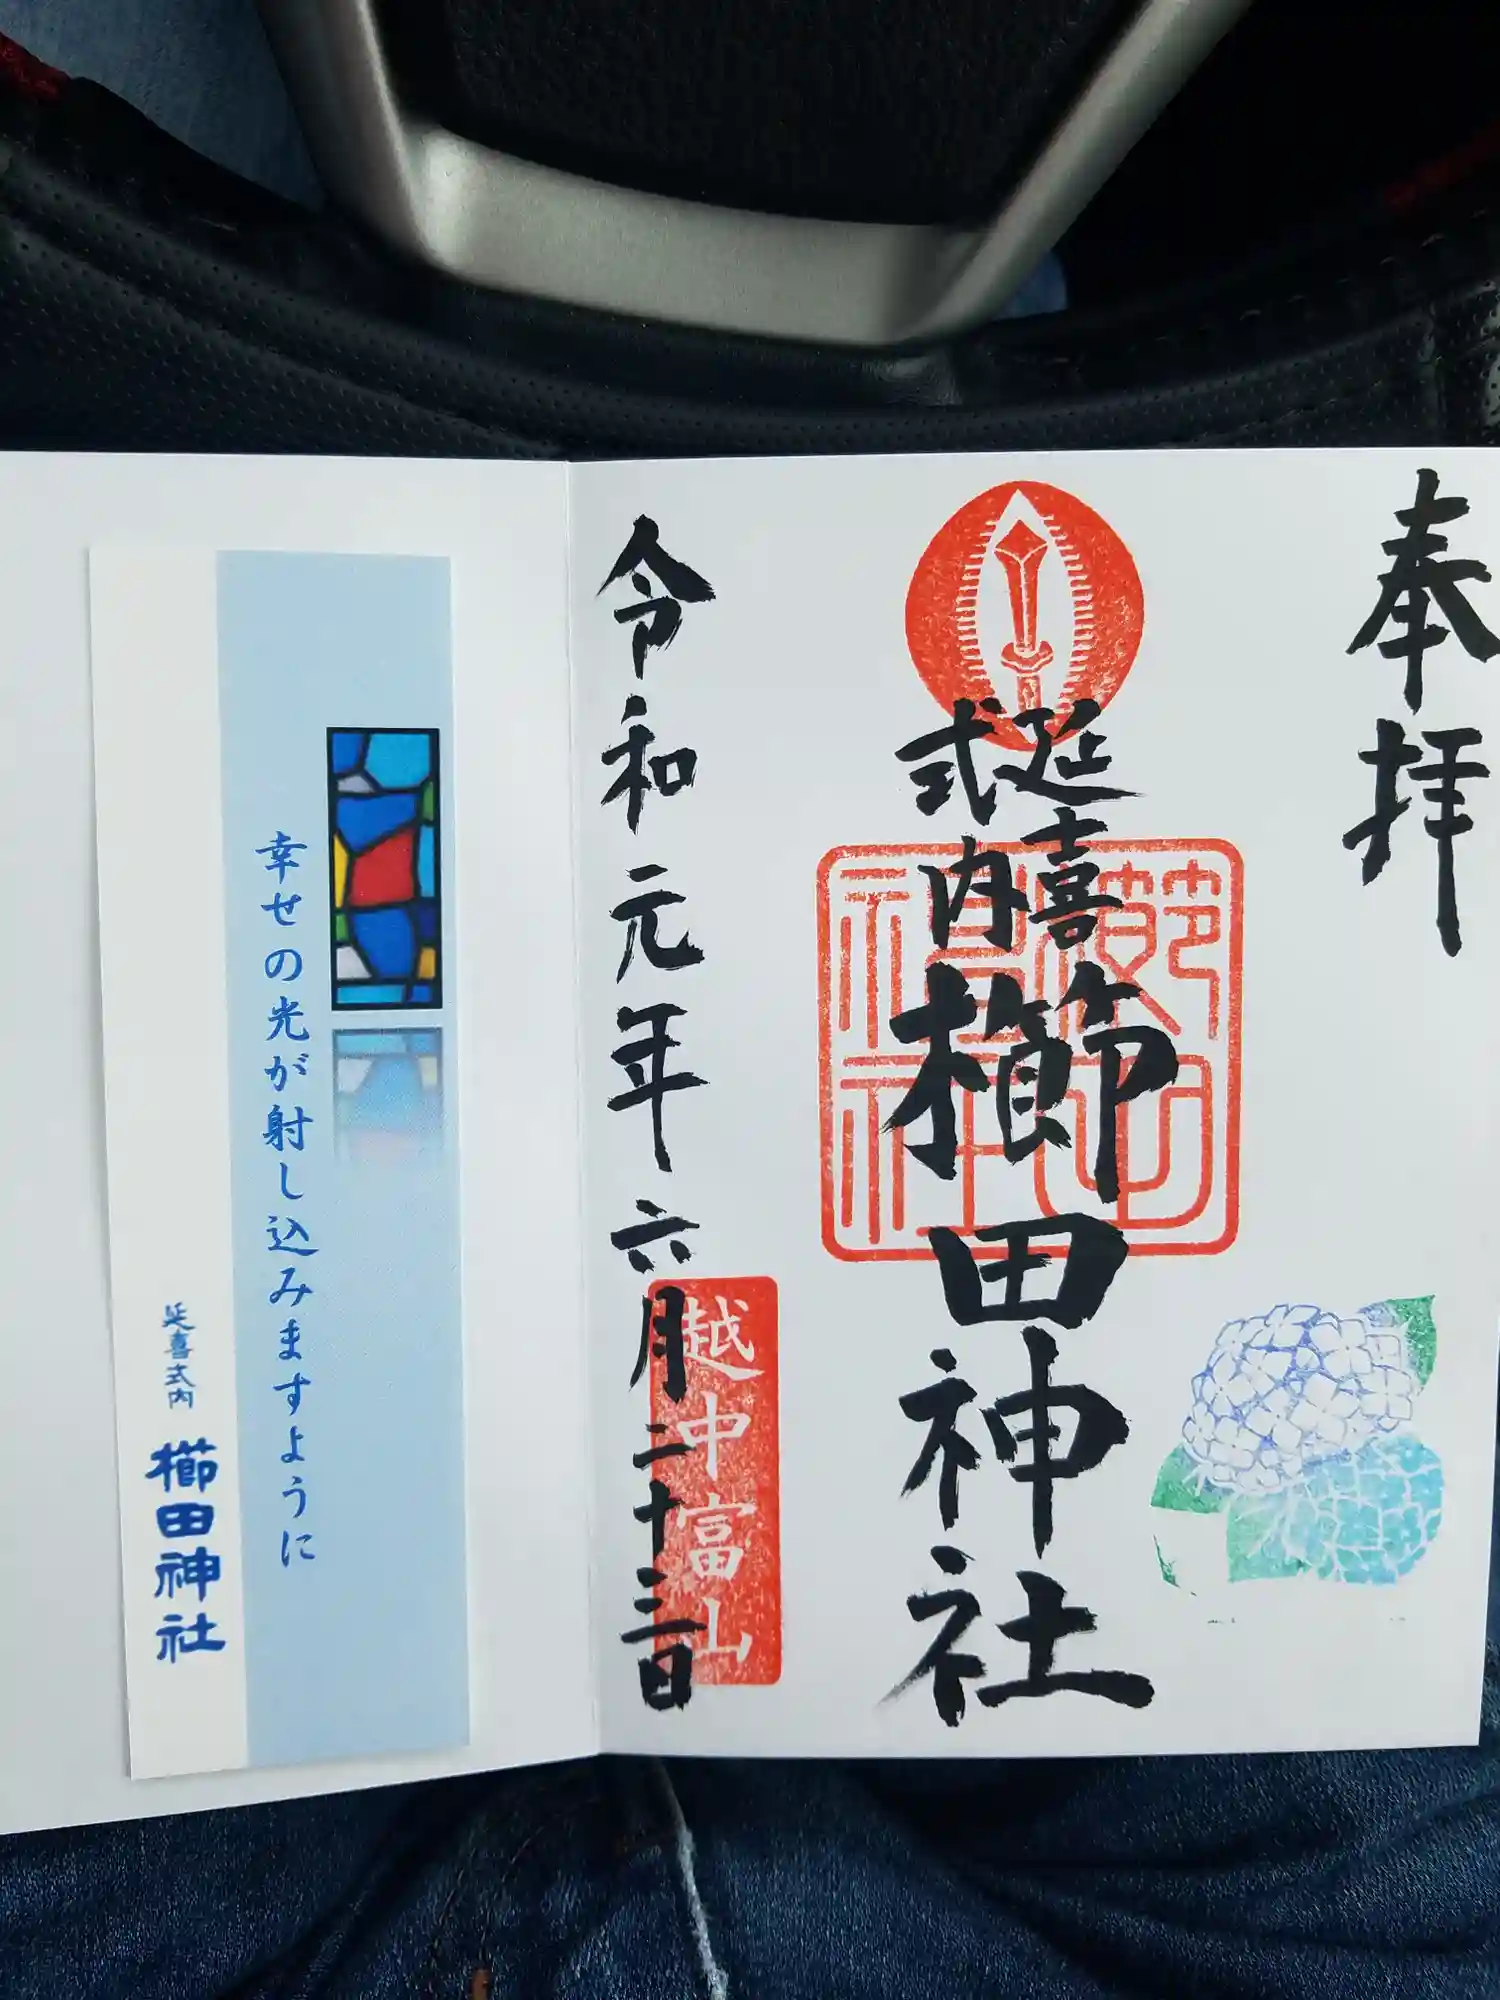 奉拝
延喜
式内
櫛田神社
櫛田神社
令和元年六月二十三日
越中富山
幸せの光が射し込みますように
延喜式内 櫛田神社